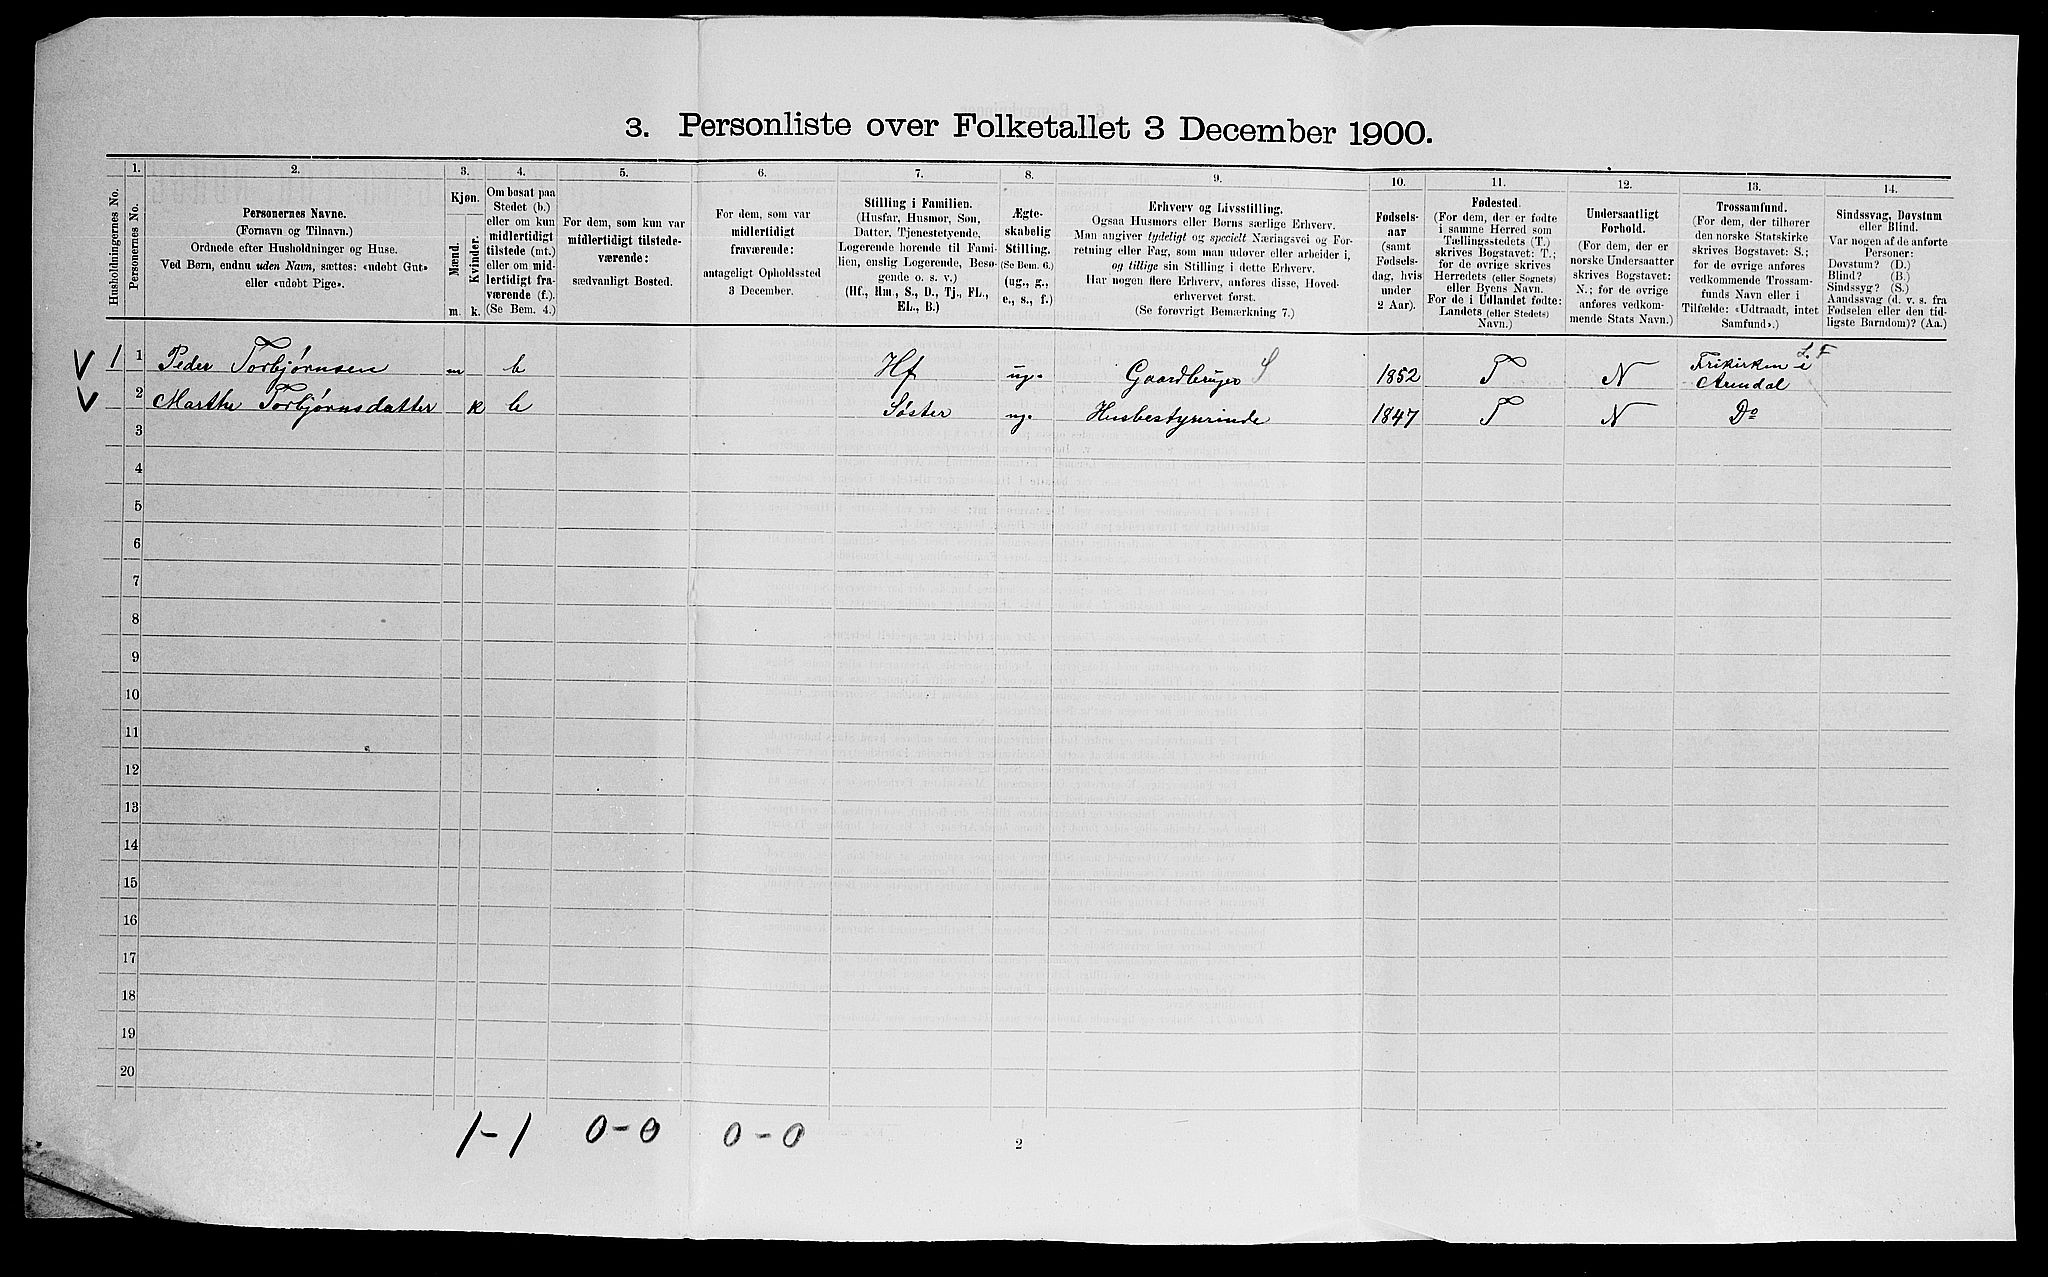 3. Personliste over Folketallet 3 December 1900.
1. 2. 3. 4. 5. 6. 7. 8. 9. 10. 11. 12. 13. 14.
Husholdningernes No.
Personernes No.
Personernes Navne.
(Fornavn og Tilnavn.)
Ordnede efter Husholdninger og Huse.
Ved Børn, endnu uden Navn, sættes: «udøbt Gut»
eller «udøbt Pige».
Kjøn.
Mænd.
Kvinder.
m. k.
Om bosat paa
Stedet (b.)
eller om kun
midlertidigt
tilstede (mt.)
eller om mid-
lertidigt fra-
værende (f.).
(Se Bem. 4.)
For dem, som kun var
midlertidigt tilstede-
værende:
sædvanligt Bosted.
For dem, som var
midlertidigt
fraværende:
antageligt Opholdssted
3 December.
Stilling i Familien.
(Husfar, Husmor, Søn,
Datter, Tjenestetyende,
Logerende hørende til Fami-
lien, enslig Logerende, Besø-
gende o. s. v.)
(Hf., Hm., S., D., Tj., FL.,
EL., B.)
Ægte-
skabelig
Stilling.
(Se Bem. 6.)
(ug., g.,
e., s., f.)
Erhverv og Livsstilling.
Ogsaa Husmors eller Børns særlige Erhverv.
Man angiver tydeligt og specielt Næringsvei og For-
retning eller Fag, som man udøver eller arbeider i,
og tillige sin Stilling i dette Erhverv.
Har nogen flere Erhverv, anføres disse, Hoved-
erhvervet først.
(Se forøvrigt Bemærkning 7.)
Fødsels-
aar
(samt
Fødsels-
dag, hvis
under
2 Aar).
Fødested.
(For dem, der er fødte
i samme Herred som
Tællingsstedets (T.)
skrives Bogstavet: T.;
for de øvrige skrives
Herredets (eller Sognets)
eller Byens Navn.
For de i Udlandet fødte:
Landets (eller Stedets)
Navn.)
Undersaatligt
Forhold.
(For dem, der er
norske Undersaatter
skrives Bogstavet:
N.; for de øvrige
anføres vedkom-
mende Stats Navn.)
Trossamfund.
(For dem, der tilhører
den norske Statskirke
skrives Bogstavet: S.;
for de øvrige anføres
vedkommende Trossam-
funds Navn eller i
Tilfælde: «Udtraadt, intet
Samfund».)
Sindssvag, Døvstum
eller Blind.
Var nogen af de anførte
Personer:
Døvstum? (D.)
Blind? (B.)
Sindssyg? (S.)
Aandssvag (d. v. s. fra
Fødselen eller den tid-
ligste Barndom)? (Aa.)
V 1 1 Peder Torbjørnsen m b Hf ug. Gaardbruger S 1852 T N Frikirken i L. F
Arendal
V 2 Marthe Torbjørnsdatter k b Søster ug. Husbestyrerinde 1847 T N Do
3
4
5
6
7
8
9
10
11
12
13
14
15
16
17
18
19
20
1-1 0-0 0-0
2